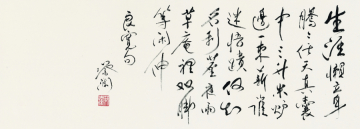 生涯懶立身
騰々任天真囊
中三升米炉
邊一束薪誰
迷悟跡何知
名利塵夜雨
草庵裡双脚
等闲伸
良寛句